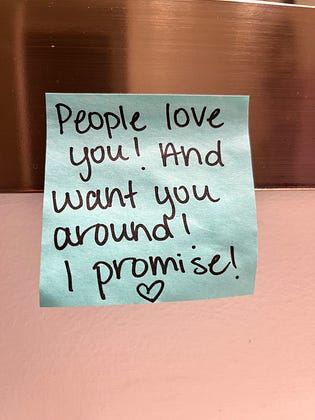 People love
you! And
want you
around!
I promise!
♡